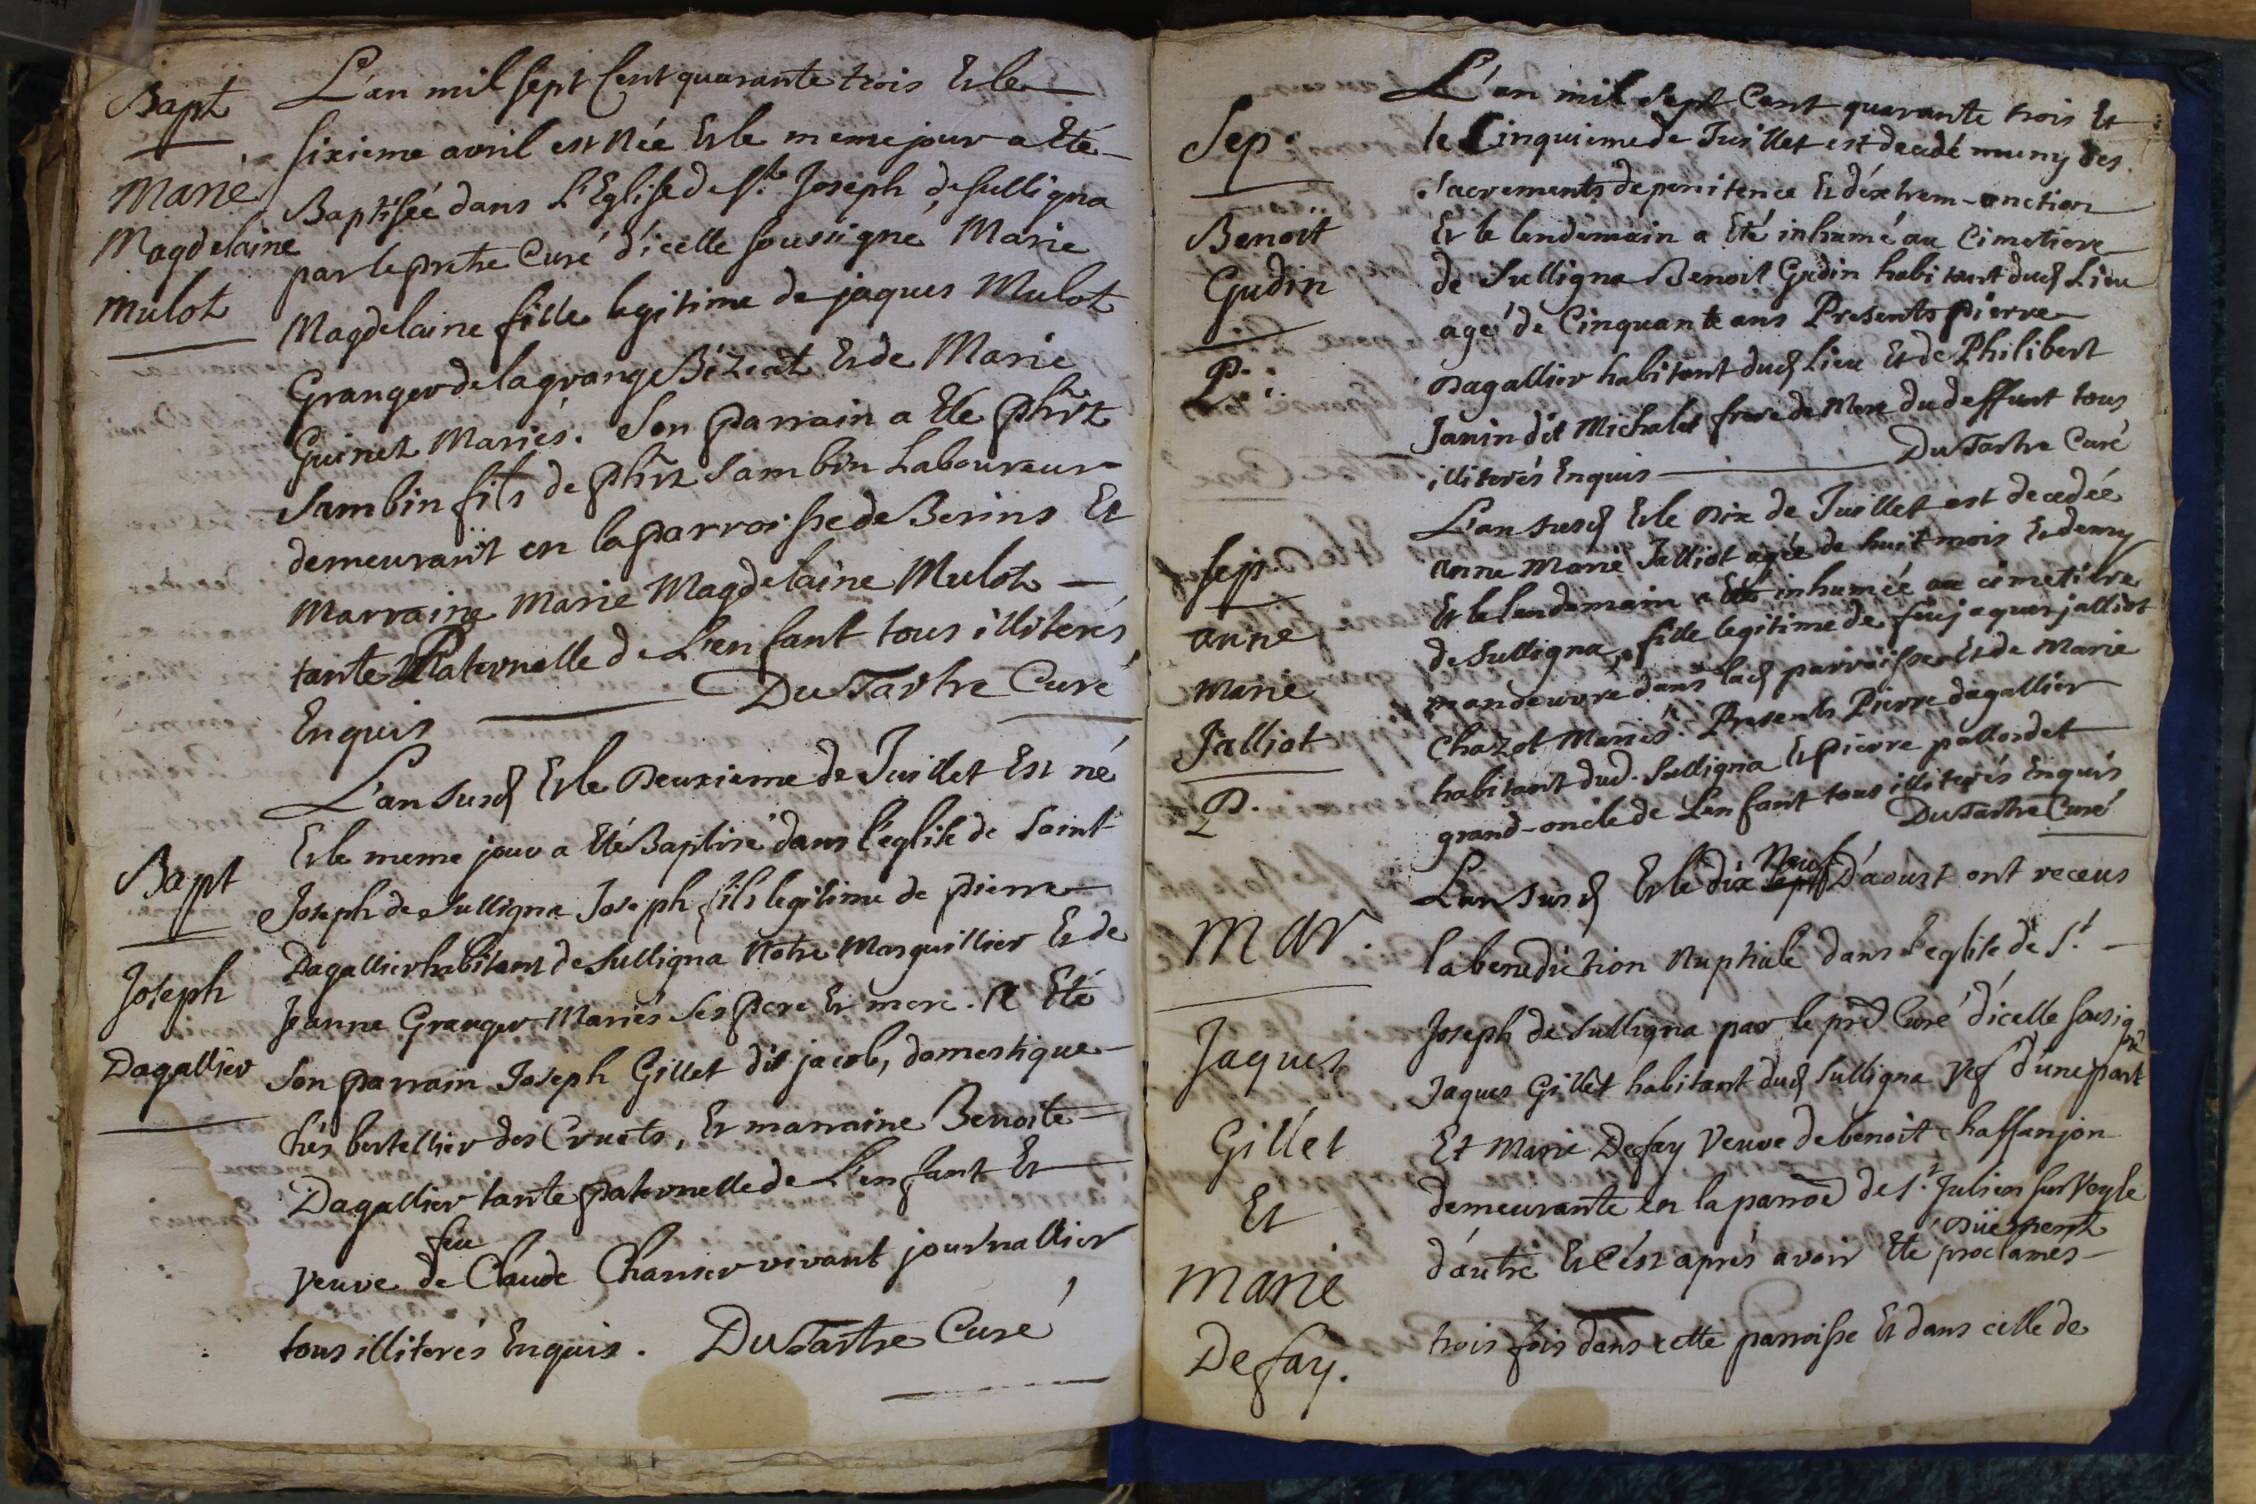 Bapt
Marie
Magdelaine
Mulot
L'an mil sept Cent quarante trois Et le
sixieme avril est Née Et le meme jour a Eté
Baptisée dans L'Eglise de St. Joseph de Sulligna
par le prêtre Curé d'icelle soussigné Marie
Magdelaine fille legitime de jaques Mulot
Granger de la grange Béziat Et de Marie
Guinet Mariés. Son Parrain a Eté Phrt
Sambin fils de phrt Sambin Laboureur
demeurant en la parroisse de Berins Et
Marraine Marie Magdelaine Mulot
tante Paternelle de L'enfant tous illiterés
Enquis DuTartre Curé
Bapt
Joseph
Dagallier
L'an susd Et le Deuxieme de Juillet Est né
Et le meme jour a Eté Baptisé dans l'eglise de Saint
Joseph de Sulligna Joseph fils legitime de pierre
Dagallier habitant de Sulligna Notre Marguillier Et de
Jeanne Granger Mariés ses Pere Et mere. A Eté
son parrain Joseph Gillet dit jacob, domestique
chés bertellier des Cruets, Et marraine Benoite
Dagallier tante paternelle de L'enfant Et
feu
veuve de Claude Chanser vivant journallier
tous illiterés Enquis. DuTartre Curé
Sep.
Benoit
Gudin
P.
L'an mil sept Cent quarante trois Et
le Cinquieme de Juillet est decedé muny des
Sacrements de penitence Et d'extrem-onction
Et le lendemain a Eté inhumé au Cimetiere
de Sulligna Benoit Gudin habitant dud Lieu
agé de Cinquante ans Presents pierre
Dagallier habitant dud Lieu Et de Philibert
Janin dit Michalet frere de Mere du deffunt tous
illiterés Enquis DuTartre Curé
Sep.
anne
Marie
Jalliot
P.
L'an susd Et le Dix de Juillet est decedée
anne Marie Jalliot agée de huit mois Et demy
Et le lendemain a Eté inhumée au cimetiere
de Sulligna, fille legitime de feu jaques jalliot
mandeuvre dans lad parroisse Et de Marie
Chazot Mariés. Presents Pierre dagallier
habitant dud. Sulligna Et pierre pallordet
grand-oncle de L'enfant tous illiterés Enquis
DuTartre Curé
Mar.
Jaques
Gillet
Et
Marie
Defay.
Neuf
L'an susd Et le dix sept D'aoust ont receus
la benediction Nuptiale dans l'eglise de St.
Joseph de Sulligna par le prd Curé d'icelle sousigné
Jaques Gillet habitant dud Sulligna Vef d'une part
Et Marie Defay Veuve de benoit chaffanjon
demeurante en la parroe de St. Julien sur Veyle
Düement
d'autre Et C'ést aprés avoir Eté proclamés
trois fois dans cette parroisse Et dans celle de